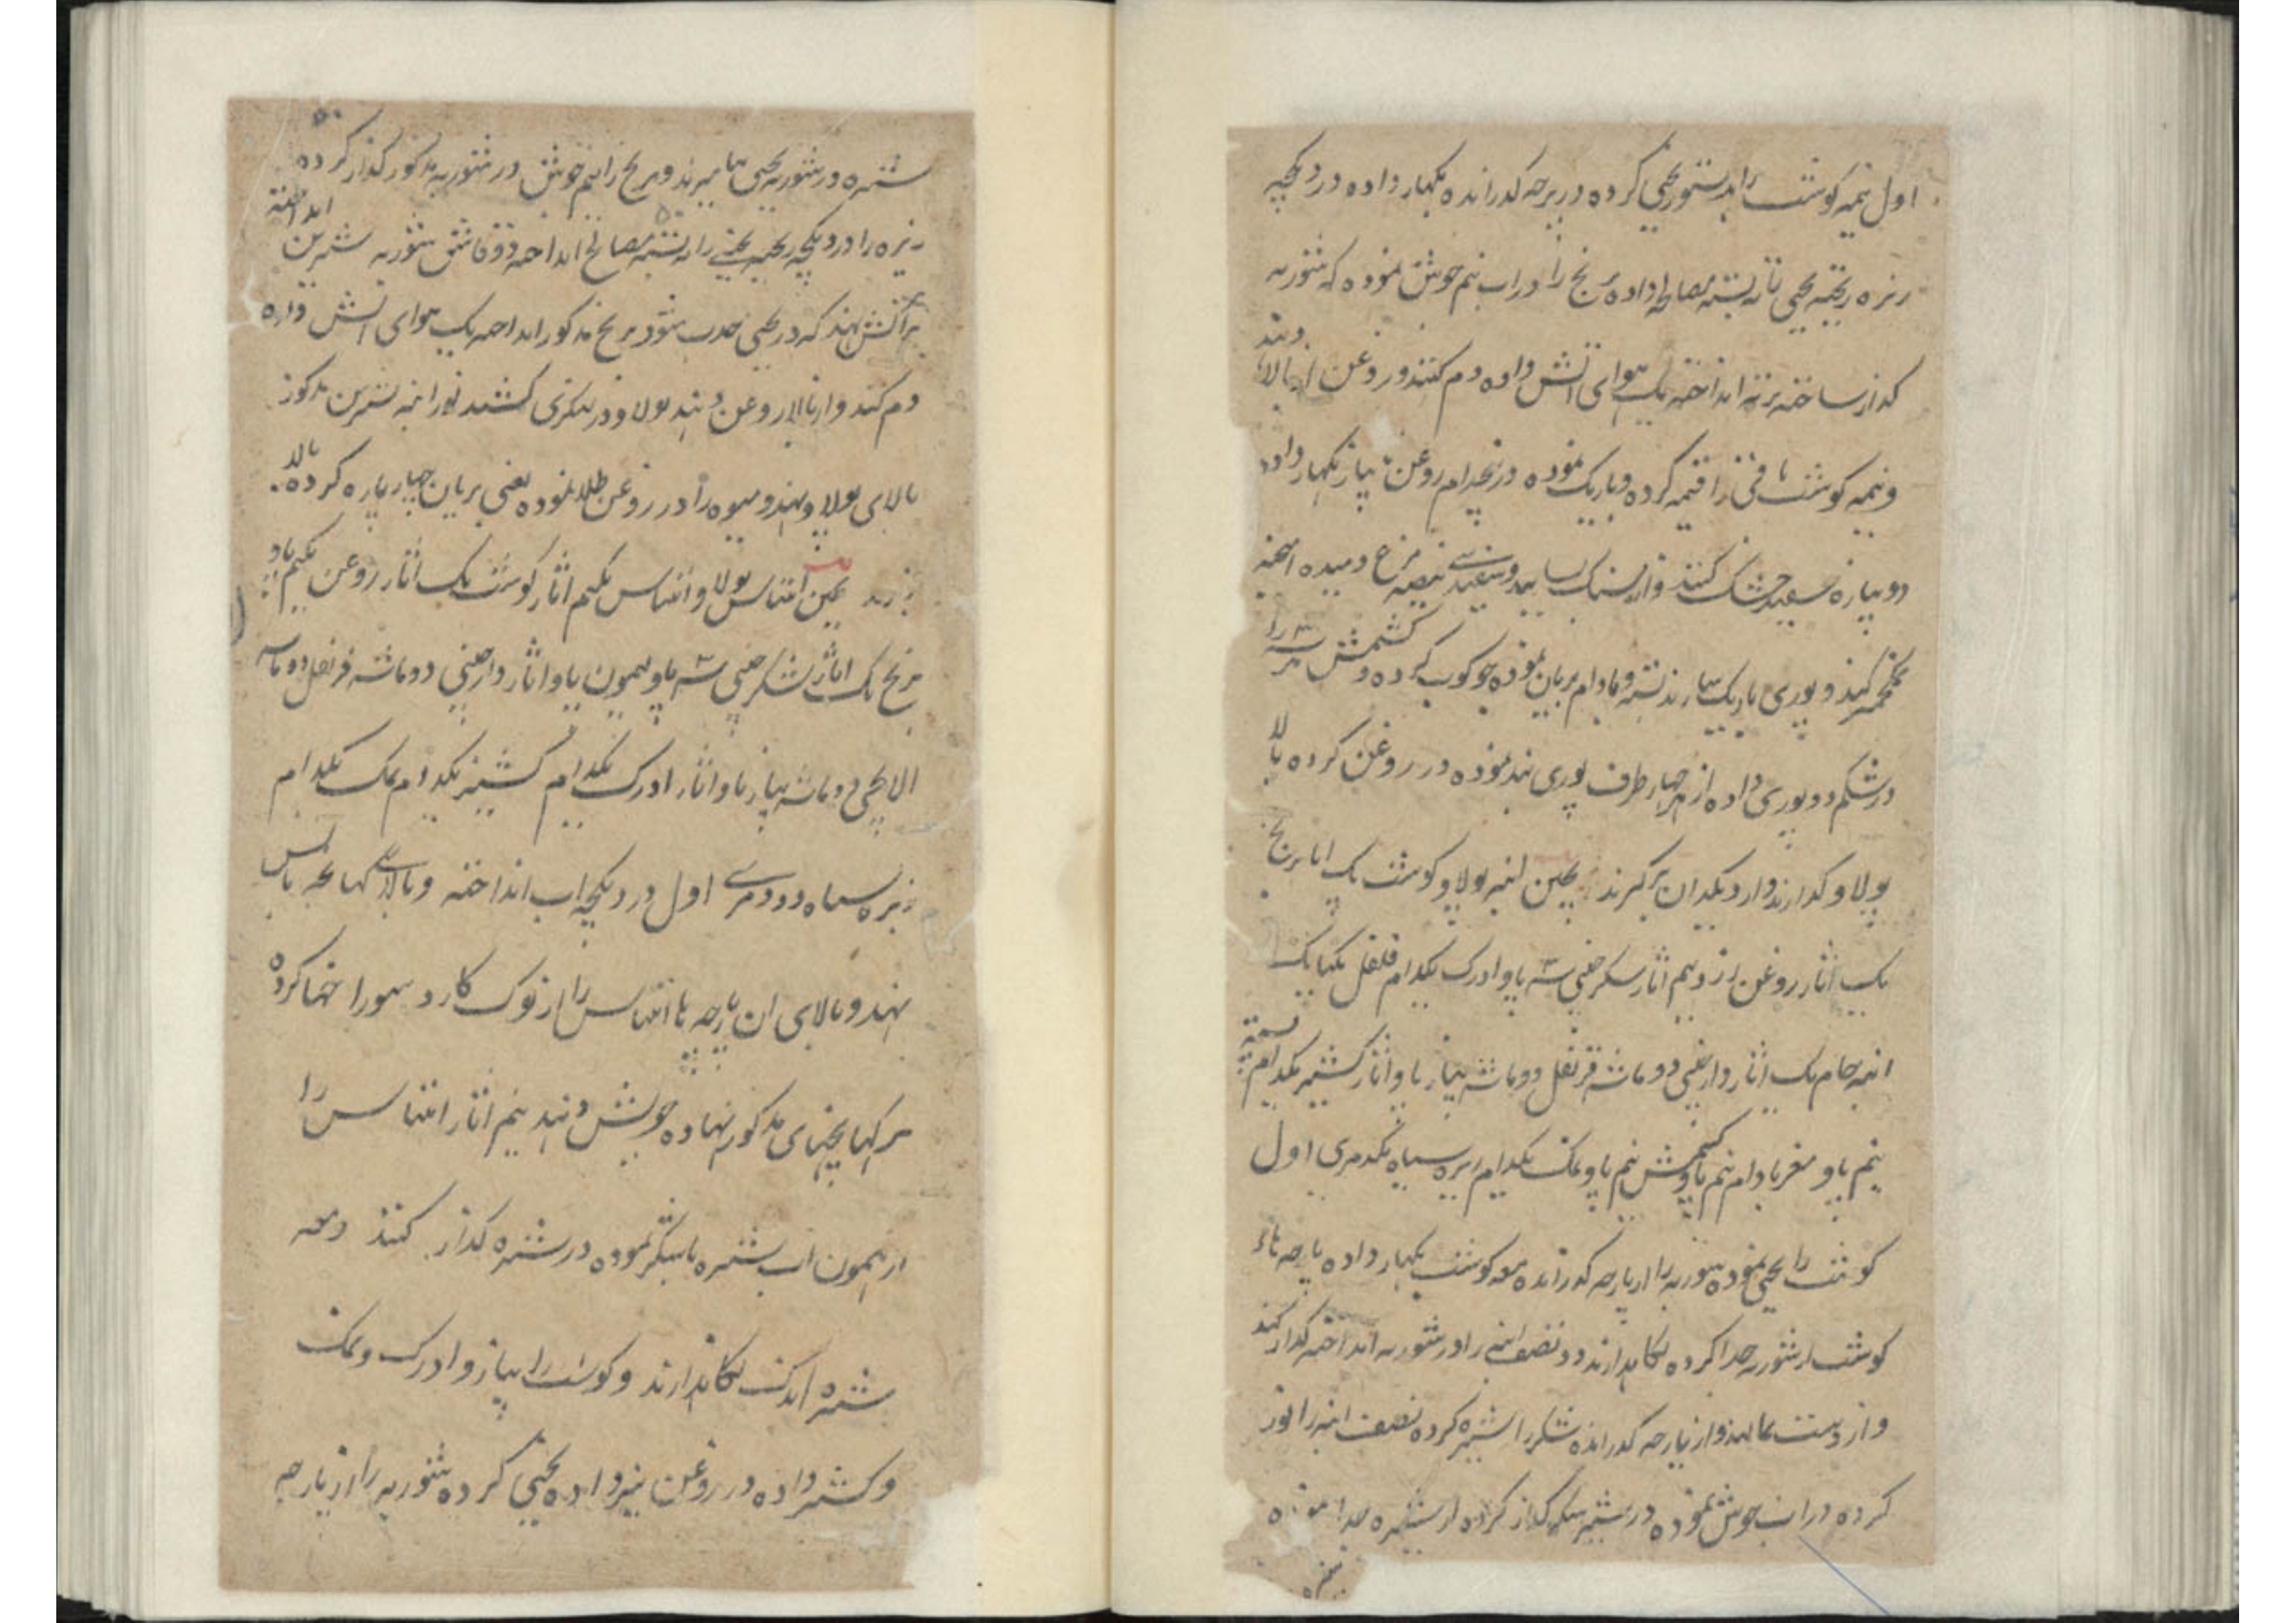 اول نیمه کوشت را بدستور یخنی کرده در پرچه کذرانده بکهار داده در دیکچه
زیره ریخته یخنی ته بسته مصالح داده برنج را در اب نیم جوش نموده که شوربه
کداز ساخته برته انداخته یک هوای اتش داده دم کنند و روغن از بالا دهند
و نیمه کوشت باقی را قیمه کرده و باریک نموده در پنجدام روغن با پیاز بکهار داده
دوپیازه سفید خشک کنند و از سنک سایید و سفیدی بیضه مرغ و میده امیخته
خمیر کنند و پوری باریک سازند پسته و بادام بریان نموده جوکوب کرده و کشمش هر سه را
در شکم دو پوری داده از هر چهار طرف پوری بند نموده در روغن کرده بالا
پولاو کذارند و از دیکدان برکیرند یمین انبه پولاو کوشت یک اثار برنج
یک اثار روغن زرد نیم اثار شکر چینی سه پاو ادرک یکدام فلفل یکتانک
انبه خام یک اثار دارچینی دو ماشه قرنفل دو ماشه پیاز پاو اثار کشنیز یکدام پسته
نیم پاو مغز بادام نیم پاو کشمش نیم پاو نمک یکدام زیره سیاه یکدمری اول
کوشت را یخنی نموده شوربه را از پارچه کذرانده معه کوشت بکهار داده پارچه های
کوشت از شوربه جدا کرده نکاهدارند و نصف انبه را در شوربه انداخته کداز کنند
و از دست بمالند و از پارچه کذرانده شکر را شیره کرده نصف انبه را پوز
کرده در اب جوش نموده در شیره شکر کداز کرده از شیره جدا نموده
شیره در شوربه یخنی بامیزند و برنج را نیم جوش در شوربه مذکور کداز کرده
زیره را در دیکچه ریخته یخنی را ته بسته مصالح انداخته دو قاشق شوربه شیرین انداخته
بر اتش نهند که در یخنی جذب شود برنج مذکور انداخته یک هوای اتش داده
دم کنند و از بالا روغن دهند پولاو در لنکری کشند پوز انبه شیرین مذکور
بالای پولاو نهند و میوه را در روغن طلا نموده یعنی بریان چهار پاره کرده بالا
ریزند یمین انناس پولاو انناس یکنیم اثار کوشت یک اثار روغن یکنیم پاو
برنج یک اثار شکر چینی سه پاو لیمون پاو اثار دارچینی دو ماشه قرنفل دو ماشه
الاچی دو ماشه پیاز پاو اثار ادرک یکدام کشنیز یکدام نمک یکدام
زیره سیاه دو دمری اول در دیکچه اب انداخته و بالای کهاپچه بانس
نهند و بالای ان پارچه ها انناس را از نوک کارد سوراخها کرده
بر کهاپچهای مذکور نهاده جوش دهند نیم اثار انناس را
از لیمون اب شیره با شکر نموده در شیره کداز کنند و معه
شیره اندک نکاهدارند و کوشت را پیاز و ادرک و نمک
و کشنیز داده در روغن نیز داده یخنی کرده شوربه را از پارچه